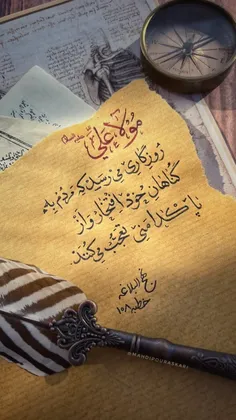 مولا علی
علیه السلام
روزگاری می‌رسد که مردم به
گناهان خود افتخار و از
پاکدامنی تعجب می‌کنند.
نهج البلاغه
خطبه ۱۰۸
@MAHDIPOURASKARI